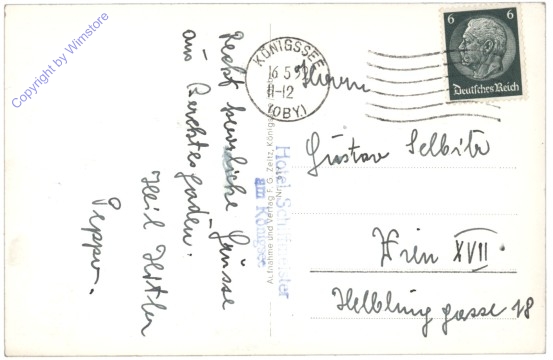 Copyright by Wimstore
Recht herzliche Grüsse
aus Berchtesgaden.
Heil Hitler
Peppo.
Hotel Schiffmeister
am Königssee
Aufnahme und Verlag F. G. Zeitz, Königssee
KÖNIGSSEE
16.5.39
11-12
(OBY.)
6 6
Deutsches Reich
Herrn
Gustav Selbitz
Wien XVII
Helblinggasse 18